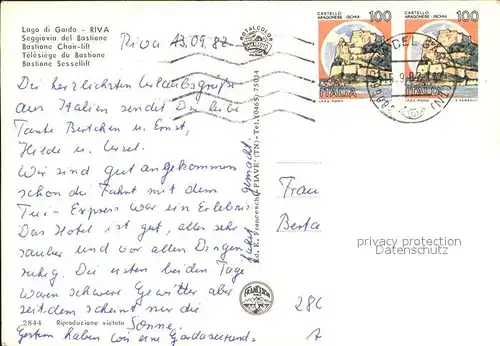 Lago di Garda - RIVA
Seggiovia del Bastione
Bastione Chair-lift
Télésiège du Bastione
Bastione Sessellift
Riva 13.09.82
CASTELLO
ARAGONESE - ISCHIA
100
ITALIA
I.P.Z.S. - ROMA
CASTELLO
ARAGONESE - ISCHIA
100
ITALIA
I.P.Z.S. - ROMA
Die herzlichsten Urlaubsgrüße
aus Italien sendet Dir liebe
Tante Bertchen u. Ernst,
Hilde u. Ursel.
Wir sind gut angekommen
schon die Fahrt mit dem
Tui - Express war ein Erlebnis
Das Hotel ist gut, alles sehr
sauber und vor allen Dingen
ruhig. Die ersten beiden Tage
waren schwere Gewitter aber
seitdem scheint nur die
Sonne.
Gestern haben wir eine Gardaseerund-
fahrt gemacht.
2844 Riproduzione vietata
Ed. E. Franceschi FIAVE' (TN) - Tel. (0465) 75034
Frau
Berta
280
privacy protection
Datenschutz